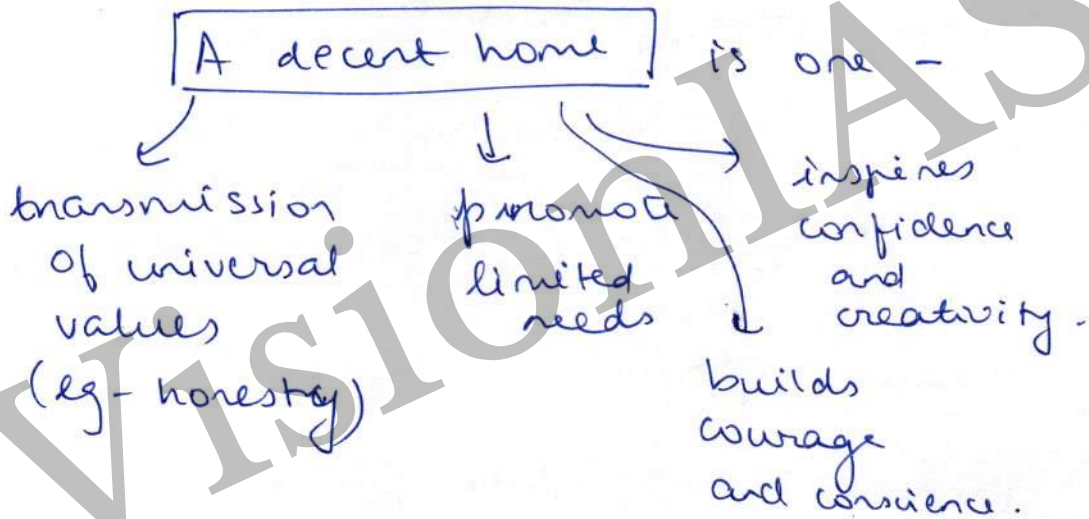 A decent home is one -
transmission
of universal
values
(eg - honesty)
promote
limited
needs
inspires
confidence
and
creativity.
builds
courage
and conscience.
VisionIAS